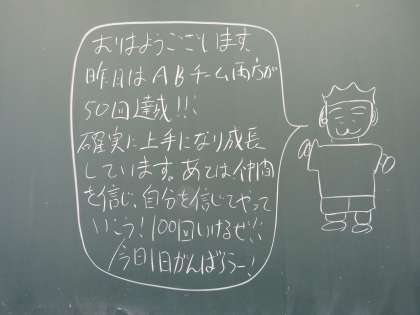 おはようございます
昨日はABチーム両方が
50回達成!!!
確実に上手になり成長
しています。あとは仲間
を信じ、自分を信じてやって
いこう！100回いけるぜ!!
今日1日がんばろうー!